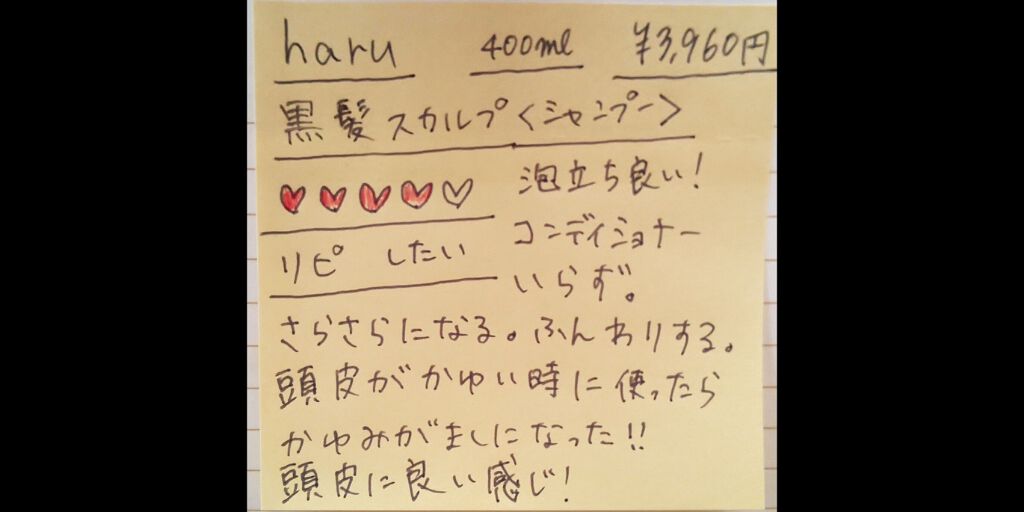 haru 400ml ¥3,960円
黒髪スカルプ<シャンプー>
♥♥♥♥♡
リピ したい
泡立ち良い!
コンディショナー
いらず。
さらさらになる。ふんわりする。
頭皮がかゆい時に使ったら
かゆみがましになった!!
頭皮に良い感じ!